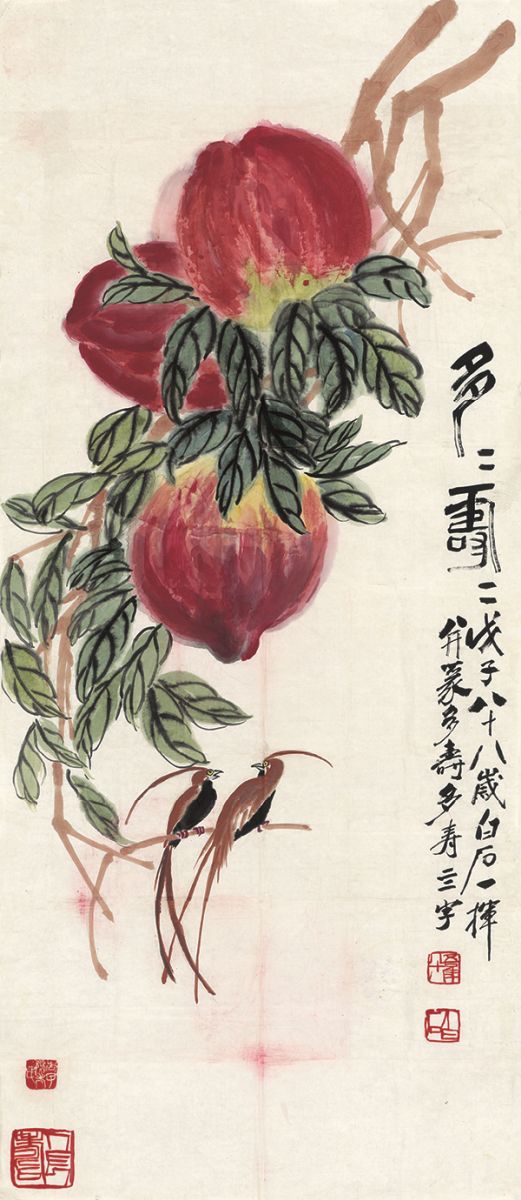 多二壽二
戊子八十八歲白石一揮
并篆多壽多寿亖字
白石